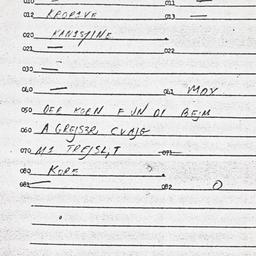 010 — 011 —
012 KROPIVE 013 —
020 KANISTINE
021 — 022
030 —
040 — 041 MOX
050 DER KORN FUN DI BEJM
060 A GREJSER, CVAJG
070 MI TREJSLT 071 —
080 KORE
081 — 082 0